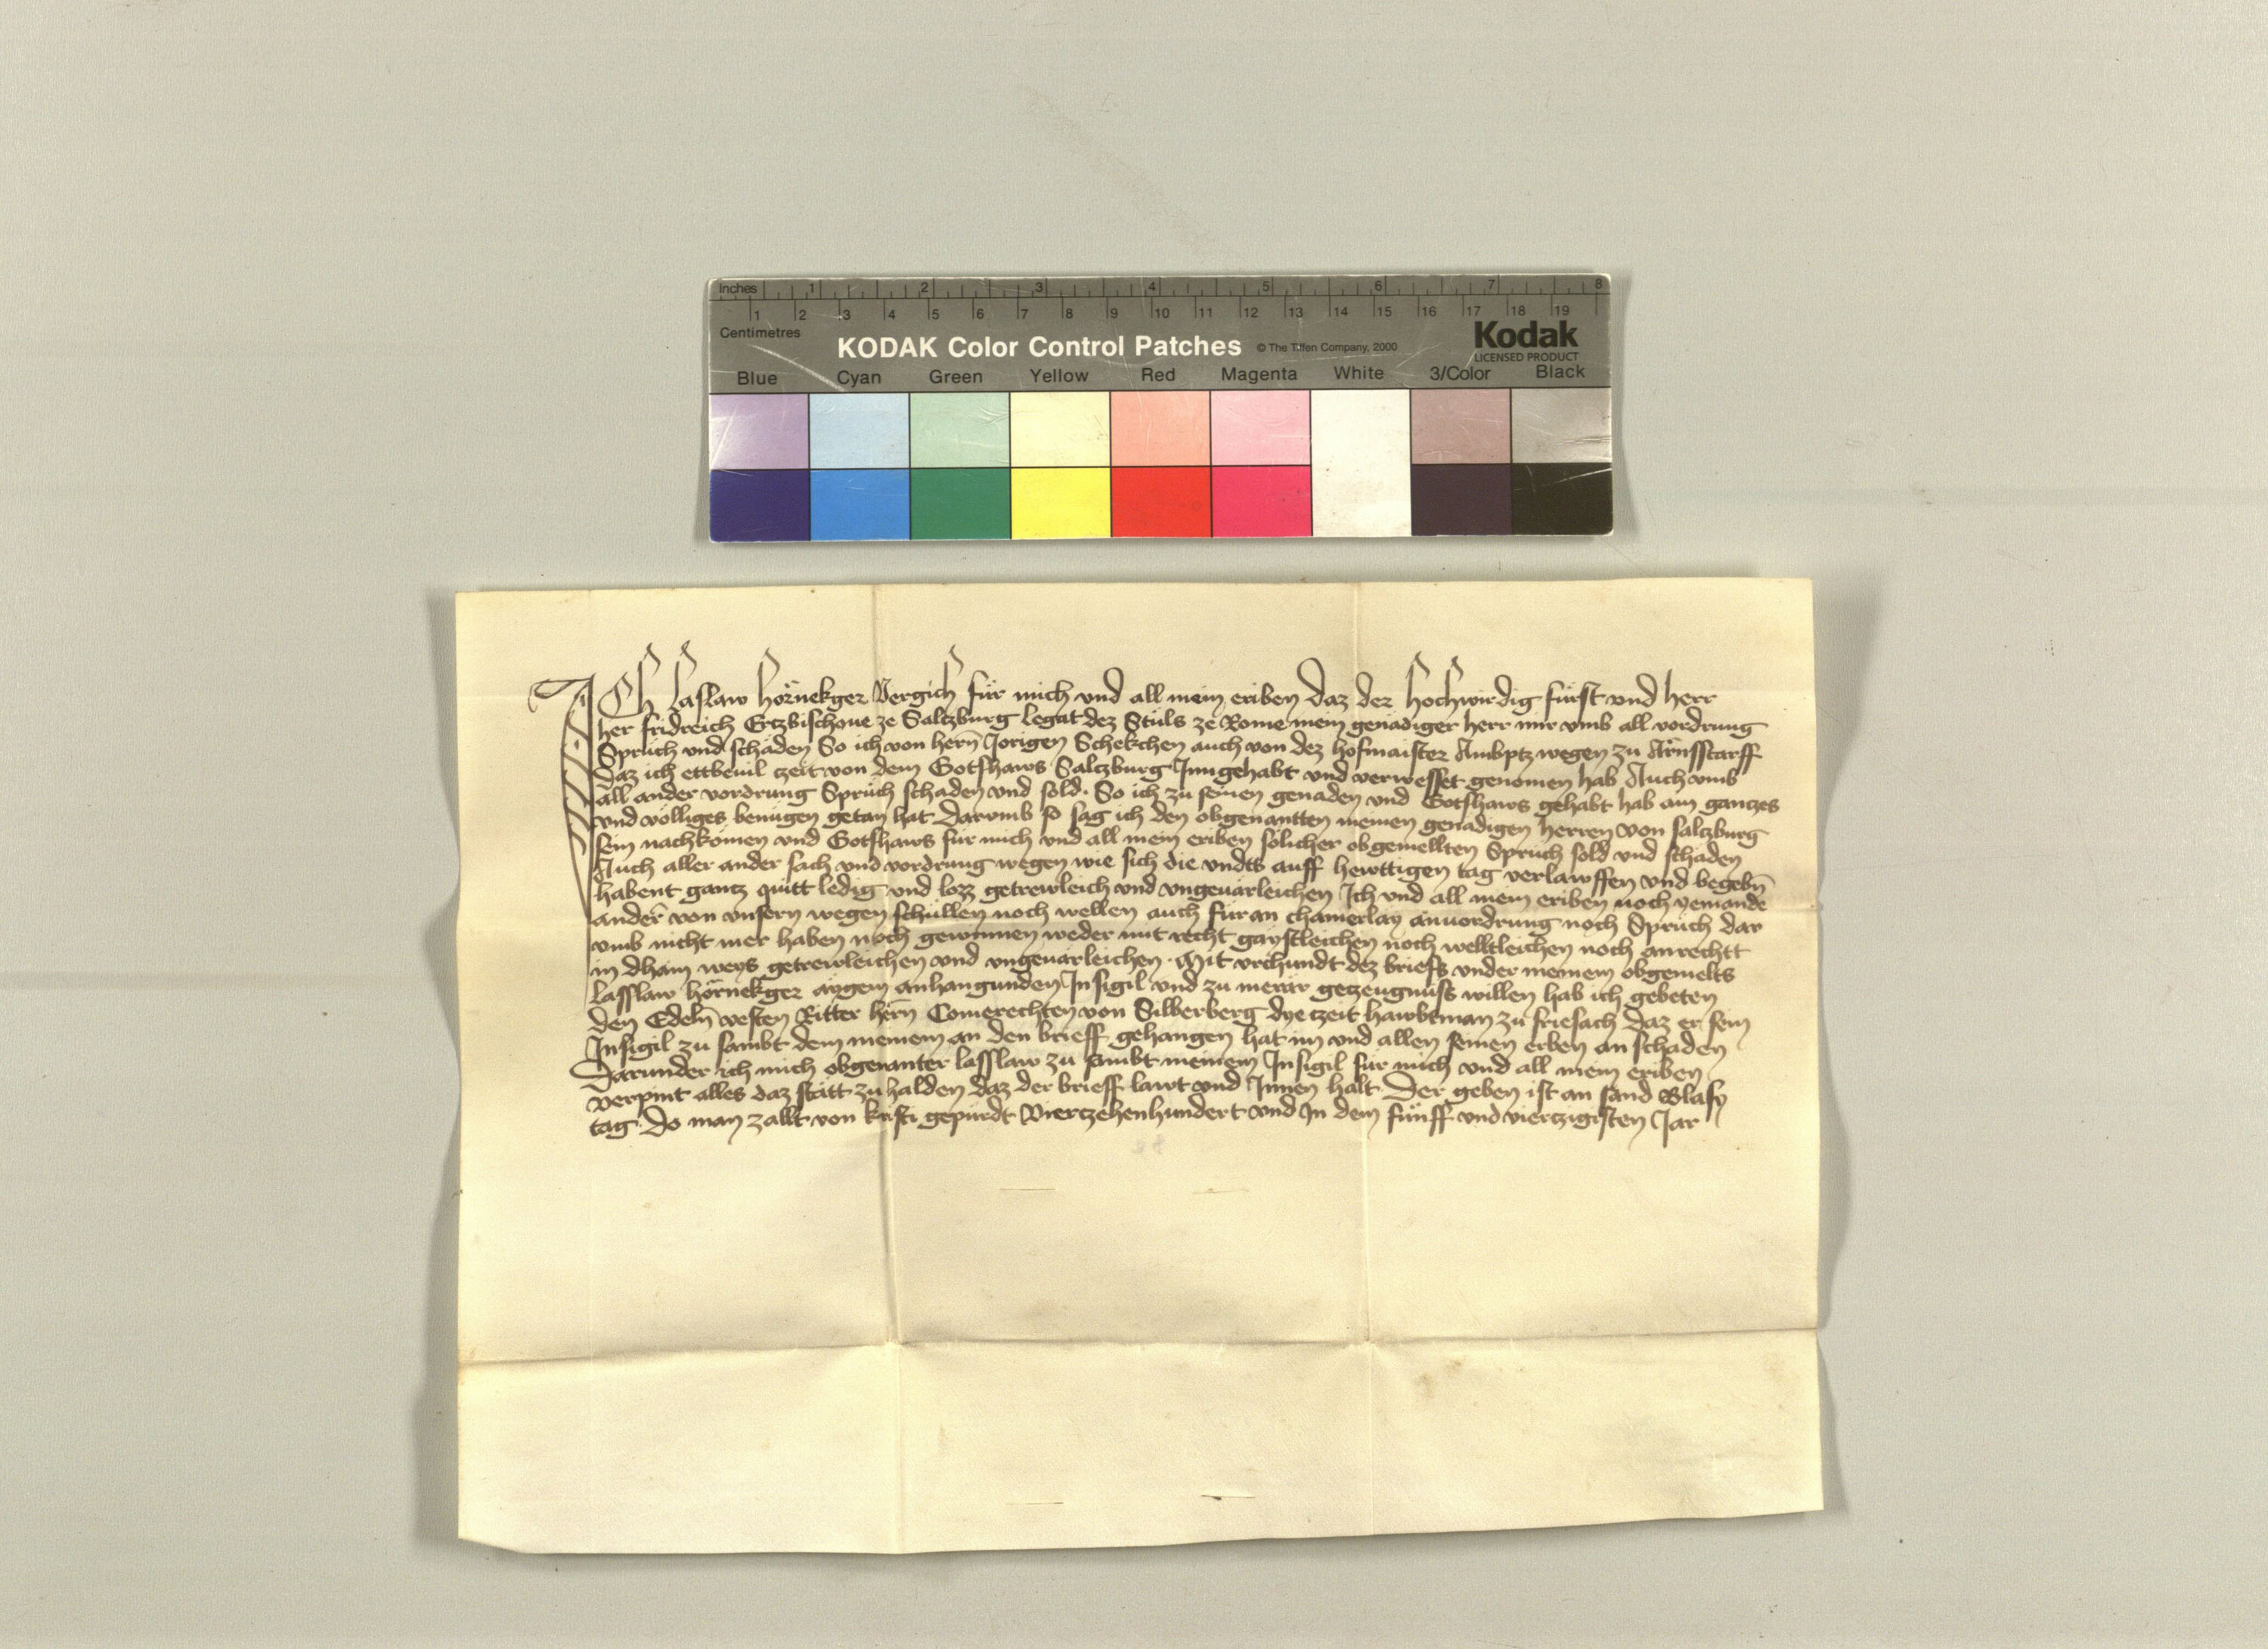 Inches 1 2 3 4 5 6 7 8
1 2 3 4 5 6 7 8 9 10 11 12 13 14 15 16 17 18 19
Centimetres
KODAK Color Control Patches © The Tiffen Company, 2000 Kodak
LICENSED PRODUCT
Blue Cyan Green Yellow Red Magenta White 3/Color Black
Ich laslaw hörnekger Vergich für mich vnd all mein eriben daz der hochwirdig fürst vnd herr
her fridreich Ertzbischoue ze Saltzburg legat dez Stuls ze Rome mein genädiger herr mir vmb all vordrung
Spruch vnd schäden So ich von hern Jorigen Schekchen auch von dez hofmaister Ambptz wegen zu Arnsstarff
daz ich ettbeuil czeit von dem Gotshaws Saltzburg Inngehabt vnd verwesset genomen hab Auch vmb
all ander vordrung Spruch schaden vnd sold. So ich zu seinen genaden vnd Gotshaws gehabt hab ain gantzes
vnd völliges benügen getan hat Darvmb so sag ich den obgenantten meinen genädigen herren von saltzburg
sein nachkomen vnd Gotshaws für mich vnd all mein eriben sölicher obgemellten Spruch sold vnd schäden
Auch aller ander sach vnd vordrung wegen wie sich die vndts auff hewttigen tag verlawffen vnd begebn
habent gantz quitt ledig vnd lozz getrewleich vnd vngeuärleichen Ich vnd all mein eriben noch yemande
ander von vnsern wegen schüllen noch wellen auch füran chainerlay anuordrung noch Spruch dar
vmb nicht mer haben noch gewinnen weder mit recht gaystleichen noch welltleichen noch anrechtt
in dhain weys getrewleichen vnd vngeuärleichen. Mit vrchundt dez brieffs vnder meinem obgemelts
lasslaw hörnekger aigem anhangunden Insigil vnd zu merär getzeugnüss willen hab ich gebeten
den Edeln vesten Ritter hern Conierechten von Silberberg dye czeit hawbtman zu friesach daz er sein
Insigil zu sambt dem meinem an den brieff gehangen hat im vnd allen seinen erben an schaden
Darunder ich mich obgenanter lasslaw zu sambt meinem Insigil für mich vnd all mein eriben
verpint alles daz stätt zu halden daz der brieff lawt vnd Innen halt Der geben ist an sand Blasy
tag Do man zallt von kristi gepurdt Vierczehenhundert vnd In dem fünff vnd vierczigisten Jar